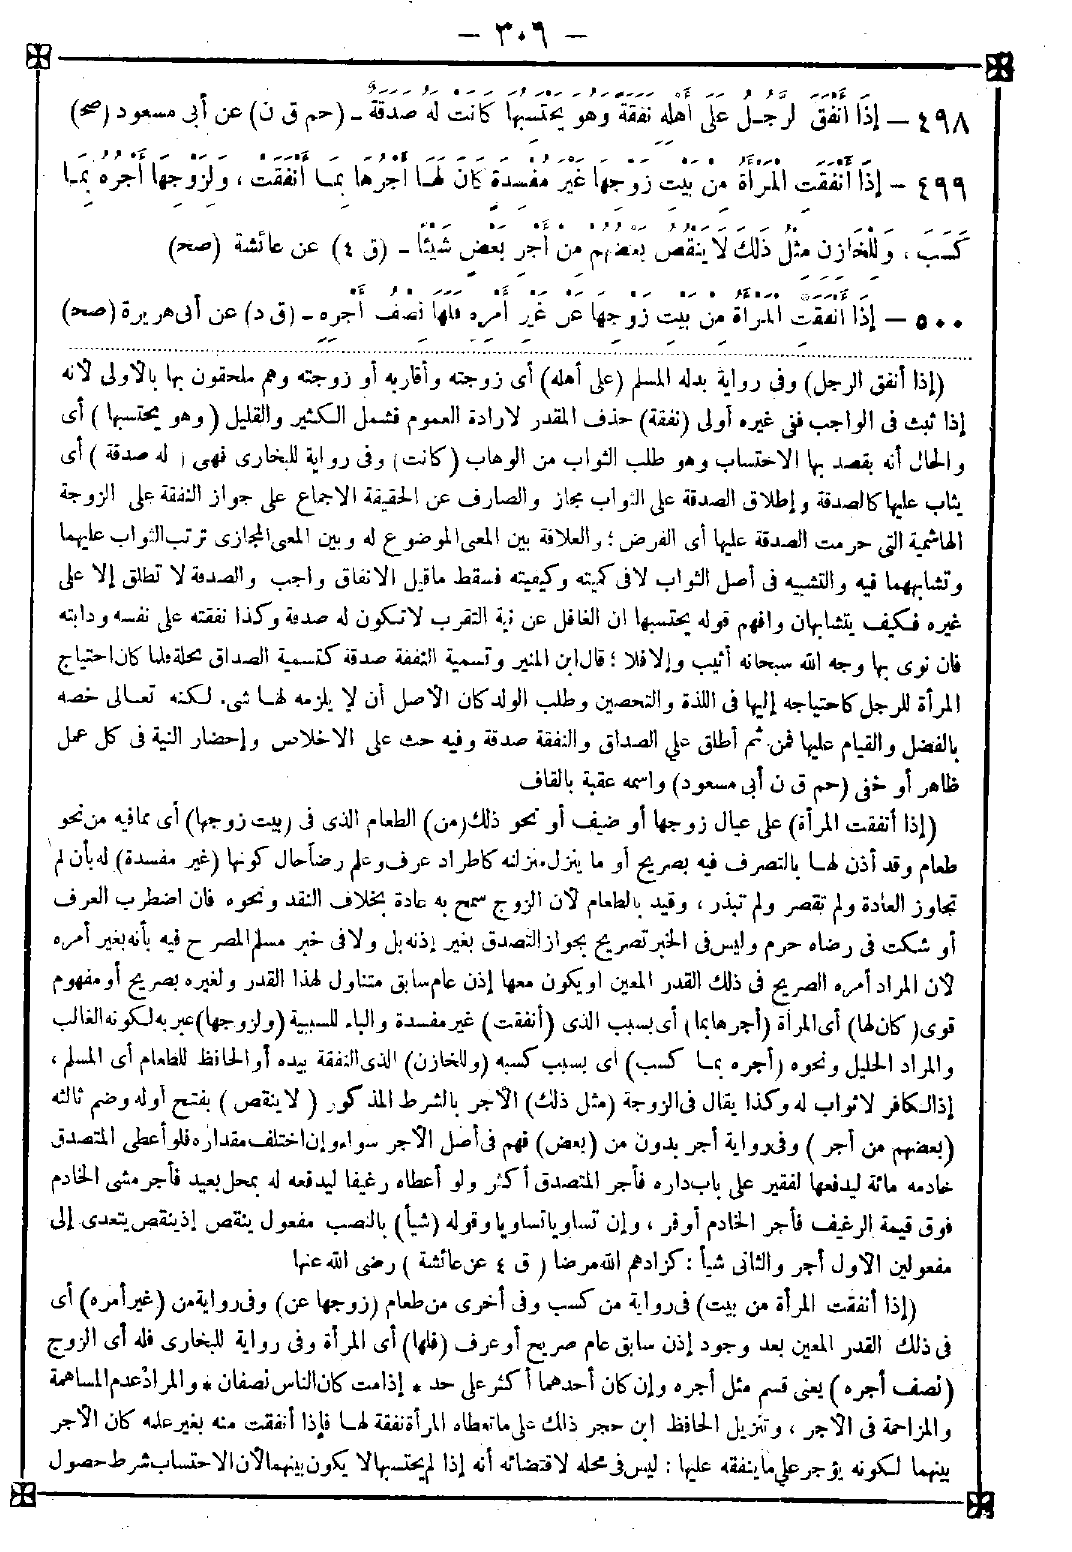 — ٣٠٦ —
٤٩٨ — إِذَا أَنْفَقَ الرَّجُلُ عَلَى أَهْلِهِ نَفَقَةً وَهُوَ يَحْتَسِبُهَا كَانَتْ لَهُ صَدَقَةً - (حم ق ن) عن أبى مسعود (صح)
٤٩٩ - إِذَا أَنْفَقَتِ الْمَرْأَةُ مِنْ بَيْتِ زَوْجِهَا غَيْرَ مُفْسِدَةٍ كَانَ لَهَا أَجْرُهَا بِمَا أَنْفَقَتْ ، وَلِزَوْجِهَا أَجْرُهُ بِمَا
كَسَبَ ، وَلِلْخَازِنِ مِثْلُ ذَلِكَ لَا يَنْقُصُ بَعْضُهُمْ مِنْ أَجْرِ بَعْضٍ شَيْئًا - (ق ٤) عن عائشة (صح)
٥٠٠ — إِذَا أَنْفَقَتِ الْمَرْأَةُ مِنْ بَيْتِ زَوْجِهَا عَنْ غَيْرِ أَمْرِهِ فَلَهَا نِصْفُ أَجْرِهِ - (ق د) عن أبى هريرة (صح)
(إذا أنفق الرجل) وفى رواية بدله المسلم (على أهله) أى زوجته وأقاربه أو زوجته وهم ملحقون بها بالأولى لأنه
إذا ثبت فى الواجب ففى غيره أولى (نفقة) حذف المقدر لإرادة العموم فشمل الكثير والقليل (وهو يحتسبها) أى
والحال أنه يقصد بها الاحتساب وهو طلب الثواب من الوهاب (كانت) وفى رواية للبخارى فهى (له صدقة) أى
يثاب عليها كالصدقة وإطلاق الصدقة على الثواب مجاز والصارف عن الحقيقة الاجماع على جواز النفقة على الزوجة
الهاشمية التى حرمت الصدقة عليها أى الفرض ؛ والعلاقة بين المعنى الموضوع له وبين المعنى المجازى ترتب الثواب عليهما
وتشابههما فيه والتشبيه فى أصل الثواب لا فى كميته وكيفيته فسقط ما قيل الانفاق واجب والصدقة لا تطلق إلا على
غيره فكيف يتشابهان وافهم قوله يحتسبها ان الغافل عن نية التقرب لا تكون له صدقة وكذا نفقته على نفسه ودابته
فان نوى بها وجه الله سبحانه أثيب وإلا فلا ؛ قال ابن المنير وتسمية النفقة صدقة كتسمية الصداق نحلة فلما كان احتياج
المرأة للرجل كاحتياجه إليها فى اللذة والتحصين وطلب الولد كان الأصل أن لا يلزمه لها شىء لكنه تعالى خصه
بالفضل والقيام عليها فمن ثم أطلق على الصداق والنفقة صدقة وفيه حث على الاخلاص وإحضار النية فى كل عمل
ظاهر أو خفى (حم ق ن أبى مسعود) واسمه عقبة بالقاف
(إذا أنفقت المرأة) على عيال زوجها أو ضيف أو نحو ذلك (من) الطعام الذى فى (بيت زوجها) أى مما فيه من نحو
طعام وقد أذن لها بالتصرف فيه بصريح أو ما ينزل منزلته كاطراد عرف وعلم رضا حال كونها (غير مفسدة) له بأن لم
تجاوز العادة ولم تقصر ولم تبذر ، وقيد بالطعام لأن الزوج سمح به عادة بخلاف النقد ونحوه فان اضطرب العرف
أو شكت فى رضاه حرم وليس فى الخبر تصريح بجواز التصدق بغير إذنه بل ولا فى خبر مسلم المصرح فيه بأنه بغير أمره
لأن المراد أمره الصريح فى ذلك القدر المعين او يكون معها إذن عام سابق متناول لهذا القدر ولغيره بصريح أو مفهوم
قوى (كان لها) أى المرأة (أجرها بما) أى بسبب الذى (أنفقت) غير مفسدة والباء للسببية (ولزوجها) عبر به لكونه الغالب
والمراد الحليل ونحوه (أجره بما كسب) أى بسبب كسبه (وللخازن) الذى النفقة بيده أو الحافظ للطعام أى المسلم ،
إذ الكافر لا ثواب له وكذا يقال فى الزوجة (مثل ذلك) الأجر بالشرط المذكور (لا ينقص) بفتح أوله وضم ثالثه
(بعضهم من أجر) وفى رواية أجر بدون من (بعض) فهم فى أصل الأجر سواء وإن اختلف مقداره فلو أعطى المتصدق
خادمه مائة ليدفعها لفقير على باب داره فأجر المتصدق أكثر ولو أعطاه رغيفا ليدفعه له بمحل بعيد فأجر مشى الخادم
فوق قيمة الرغيف فأجر الخادم أوفر ، وإن تساويا تساويا وقوله (شيأ) بالنصب مفعول ينقص إذ ينقص يتعدى إلى
مفعولين الأول أجر والثانى شيأ : كزادهم الله مرضا (ق ٤ عن عائشة) رضى الله عنها
(إذا أنفقت المرأة من بيت) فى رواية من كسب وفى أخرى من طعام (زوجها عن) وفى رواية من (غير أمره) أى
فى ذلك القدر المعين بعد وجود إذن سابق عام صريح أو عرف (فلها) أى المرأة وفى رواية للبخارى فله أى الزوج
(نصف أجره) يعنى قسم مثل أجره وإن كان أحدهما أكثر على حد * إذا مت كان الناس نصفان * والمراد عدم المساهمة
والمزاحمة فى الأجر ، وتنزيل الحافظ ابن حجر ذلك على ما تعطاه المرأة نفقة لها فإذا أنفقت منه بغير علمه كان الأجر
بينهما لكونه يؤجر على ما ينفقه عليها : ليس فى محله لاقتضائه أنه إذا لم يحتسبها لا يكون بينهما لأن الاحتساب شرط حصول